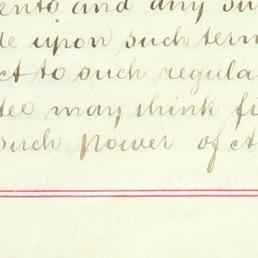 ents and any su
de upon such term
ct to such regula
tee may think fi
such power of A